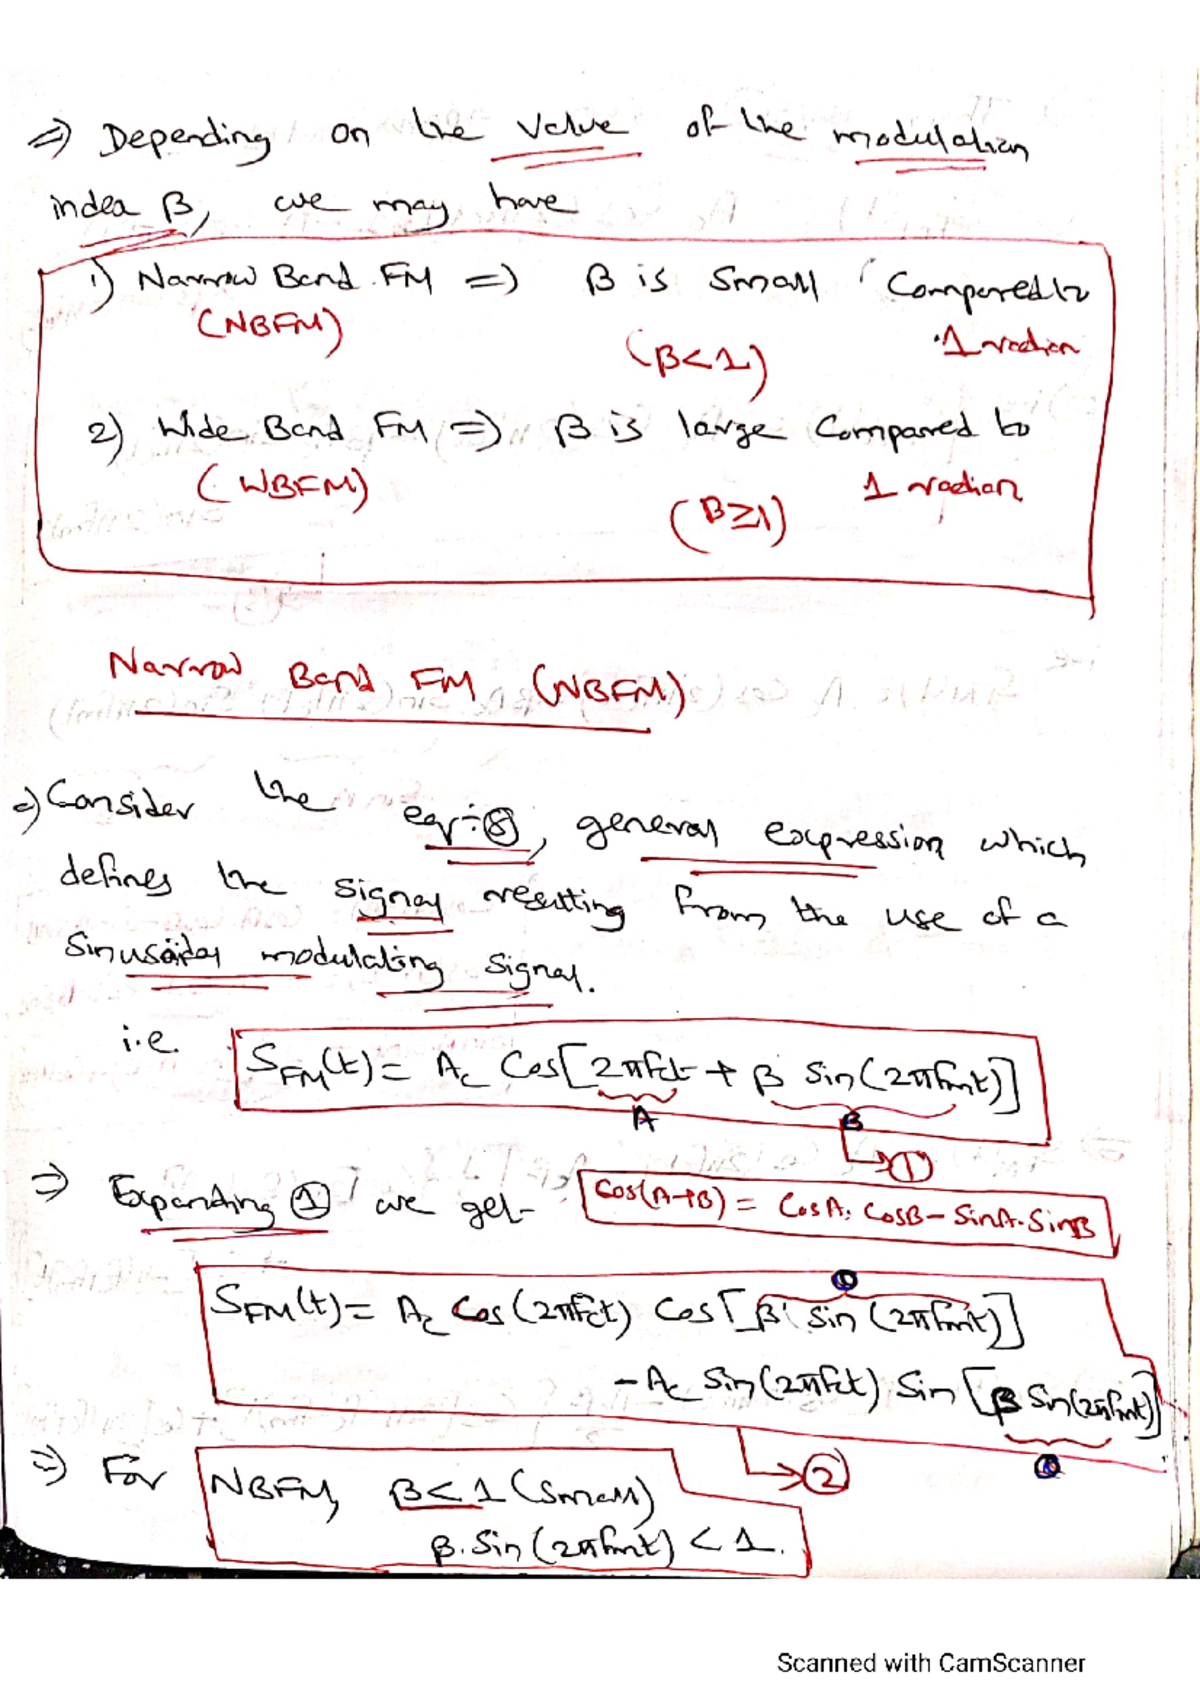 ⇒) Depending on the value of the modulation
index β, we may have
1) Narrow Band FM ⇒) β is small Compared to
(NBFM) (β<1) 1 radian
2) Wide Band FM ⇒) β is large Compared to
(WBFM) (β≥1) 1 radian
Narrow Band FM (NBFM)
⇒) Consider the eqn 8, general expression which
defines the signal resulting from the use of a
Sinusoidal modulating Signal.
i.e. S_FM(t) = A_c Cos[2πfct + β Sin(2πfmt)]
A B
1
⇒) Expanding ① we get Cos(A+B) = CosA. CosB - SinA. SinB
S_FM(t) = A_c Cos(2πfct) Cos[β Sin(2πfmt)]
- A_c Sin(2πfct) Sin[β Sin(2πfmt)]
2
⇒) For NBFM, β<1 (small)
β. Sin(2πfmt) < 1.
Scanned with CamScanner